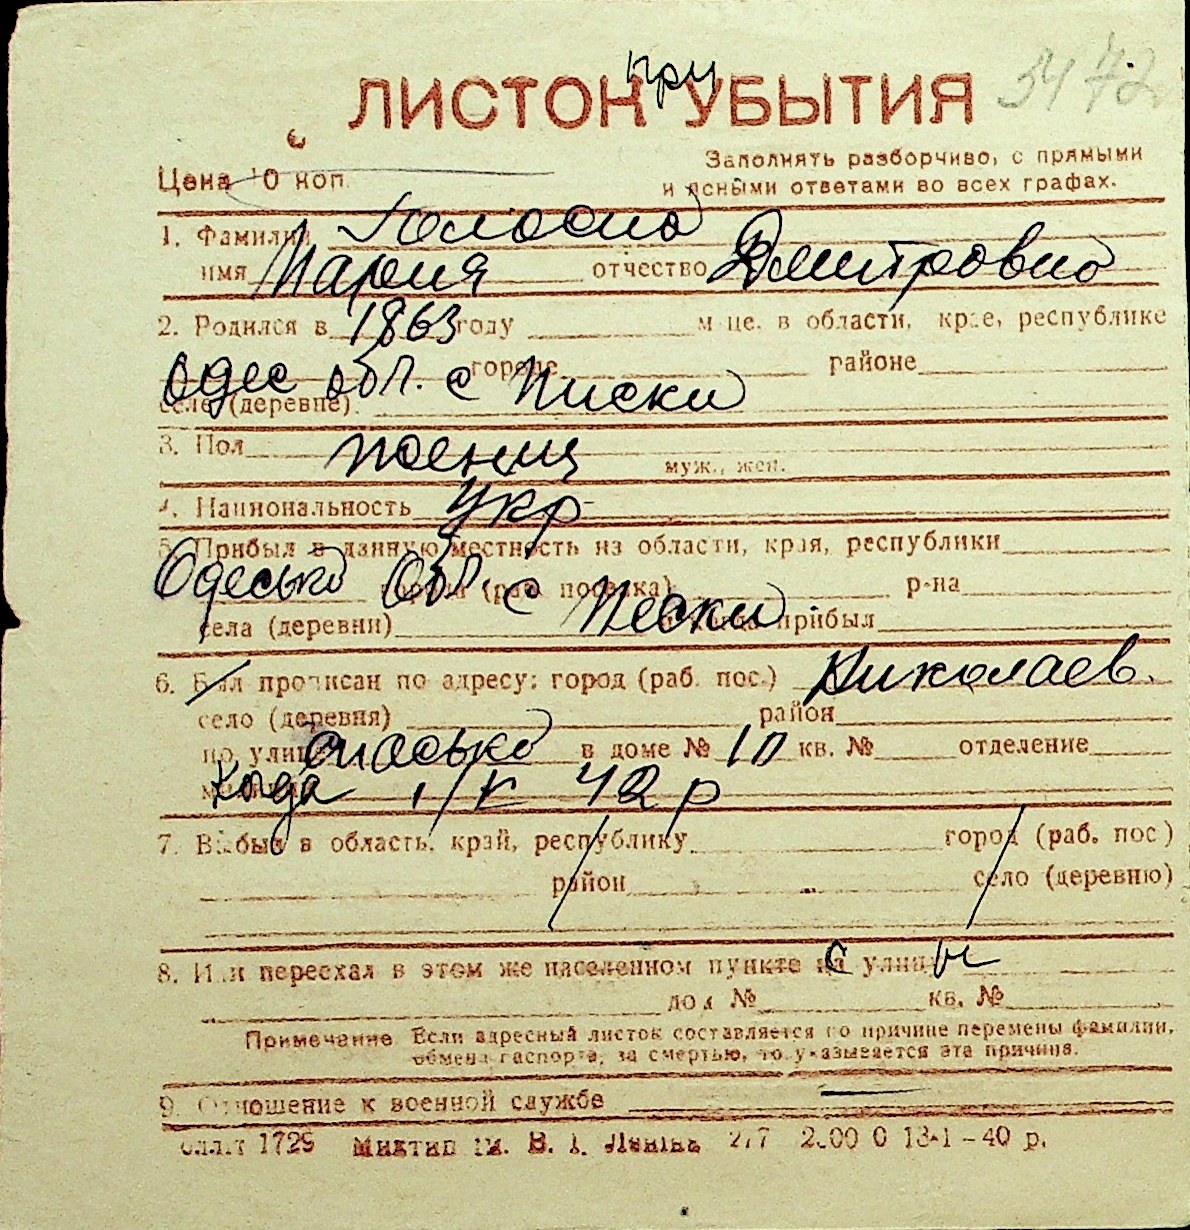 при
ЛИСТОК УБЫТИЯ
Цена 10 коп.
Заполнять разборчиво, с прямыми
и ясными ответами во всех графах.
1. Фамилия
имя Мария отчество Дмитровно
2. Родился в 1863 году м-це. в области, крае, республике
Одес обл. с Писки городе районе
селе (деревне)
3. Пол женщ муж., жен.
4. Национальность Укр
5. Прибыл в данную местность из области, края, республики
Одесько Обл. с Пески города (раб. поселка) р-на
села (деревни) прибыл
6. Был прописан по адресу: город (раб. пос.) Николаев.
село (деревня) район
по улице в доме № 10 кв. № отделение
когда 42 р
7. Выбыл в область, край, республику город (раб. пос.)
район село (деревню)
8. Или переехал в этом же населенном пункте с улицы
дом № кв. №
Примечание Если адресный листок составляется по причине перемены фамилии,
обмена паспорта, за смертью, то указывается эта причина.
9. Отношение к военной службе
1729 Миктип ім. В. І. Леніна 40 р.